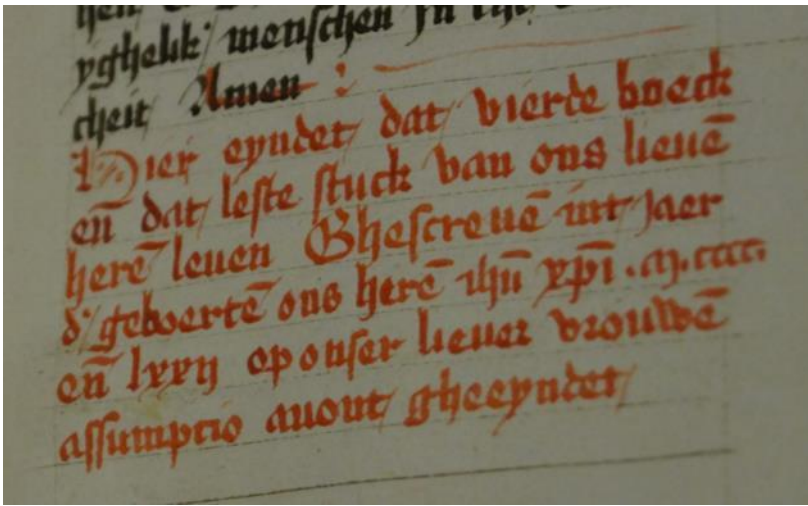 yghelik menschen in
cheit Amen
Hier eyndet dat vierde boeck
en̄ dat leste stuck van ons lieuē
herē leuen Ghescreuē int jaer
d' geboertē ons herē ihū xp̄i .m.cccc.
en̄ lxxij op onser lieuer vrouwē
assumptio auont gheeyndet